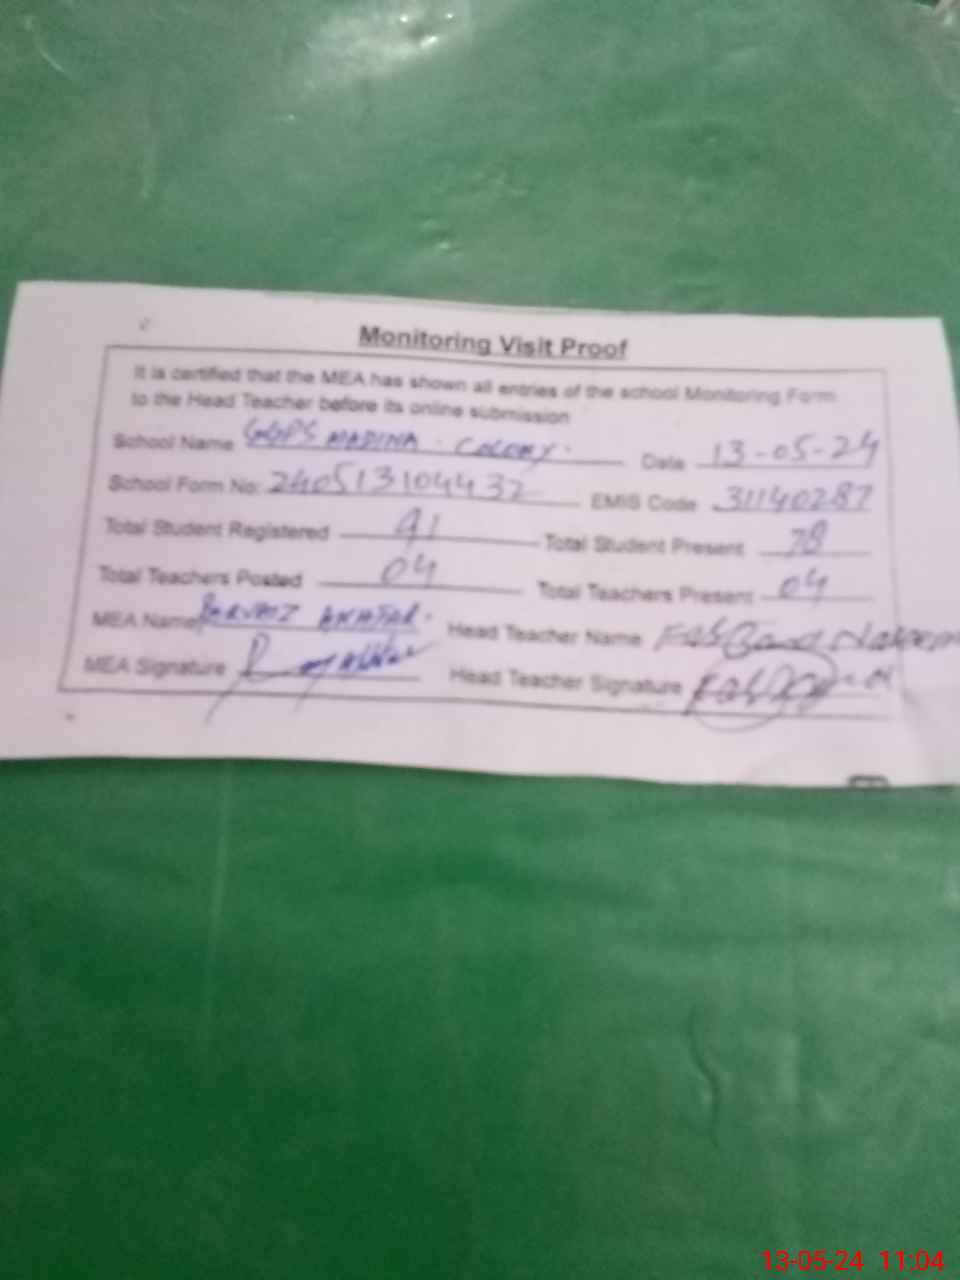 Monitoring Visit Proof
It is certified that the MEA has shown all entries of the school Monitoring Form
to the Head Teacher before its online submission
School Name GGPS MADINA COLONY. Date 13-05-24
School Form No: 240513104432 EMIS Code 31140287
Total Student Registered 91 Total Student Present 78
Total Teachers Posted 04 Total Teachers Present 04
MEA Name PARVAIZ AKHTAR. Head Teacher Name
MEA Signature Head Teacher Signature
13-05-24 11:04